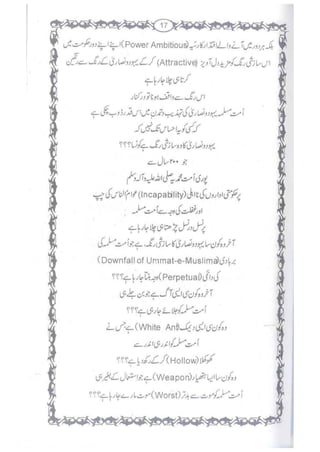 17
بلکہ ہر دور میں آنے والے اقتدار کا رسیہ (Power Ambitious) اپنے اپنے دور حکومت میں
اس سازشی رنگ کو مزید دل آویز (Attractive) کر کے یہود و نصاریٰ کے رنگ سے رنگین
کرتا ہی چلا جا رہا ہے
اس رنگ سے واقف ہونا تو درکنار
اُمت مسلمہ یہود و نصاریٰ کی تہذیب و تمدن میں اس قدر ڈوب چکی ہے
کہ کسی کو یہ احساس تک نہیں کہ
یہود و نصاریٰ کا وہ سازشی رنگ ہے کونسا؟؟؟
جو ۲۰۰ سال سے
پوری اُمت محمدیہ صلی اللہ علیہ وآلہ وسلم
پر حکومتی اداروں کی نااہلی (Incapability) عوام الناس کی چپ
اور غفلت کی وجہ سے اُمت مسلمہ
پر نسل در نسل چڑھتا ہی چلا جا رہا ہے
آخر وہ کون سا یہود و نصاریٰ کا سازشی رنگ ہے جو اُمت مسلمہ کی
بربادی (Downfall of Ummat-e-Muslima)
کی دائمی (Perpetual) وجہ بنتا جا رہا ہے؟؟؟
آخر وہ کون سی ایسی آگ ہے جو بن جلے ہی
اُمت مسلمہ کو جلائے جا رہی ہے؟؟؟
وہ کون سی ایسی دیمک (White Ant) ہے جس نے
اُمت مسلمہ کو اندر ہی اندر سے
کھوکھلا (Hollow) کر کے رکھ دیا ہے؟؟؟
وہ کون سا ایسا ہتھیار (Weapon) ہے جو استعمال کے بغیر ہی
اُمت مسلمہ کو موت سے بدتر (Worst) موت مارے جا رہا ہے؟؟؟